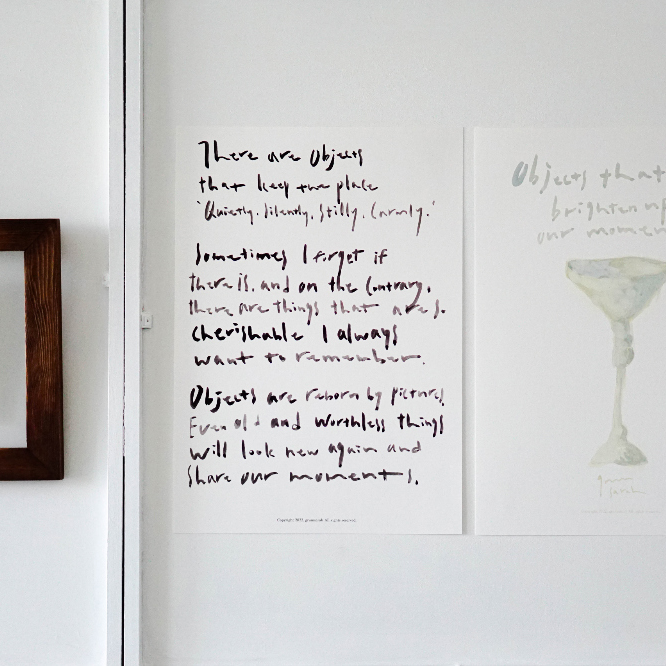 There are Objects
that keep the place
'Quietly. Silently. Stilly. Carmly.'
Sometimes I forget if
there is. and on the Contrary.
there are things that are so.
cherishable I always
want to remember.
Objects are reborn by pictures.
Even old and worthless things
will look new again and
Share our moments.
Objects that
brighten up
our momen